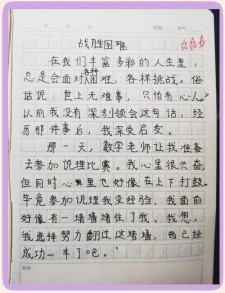 战胜困难
在我们丰富多彩的人生里，
总是会面对困难，各种各样挑战。俗
话说：世上无难事，只怕有心人。
以前我没有深刻领会这句话，经
历那件事后，我深受启发。
那一天，数学老师让我准备
去参加说理比赛。我心里很兴奋，
但同时心里也好像在上下打鼓。
毕竟参加说理我没经验，我面前
好像有一堵墙堵住了我。我想，
我选择努力翻过这堵墙，也已经
成功一半了吧。